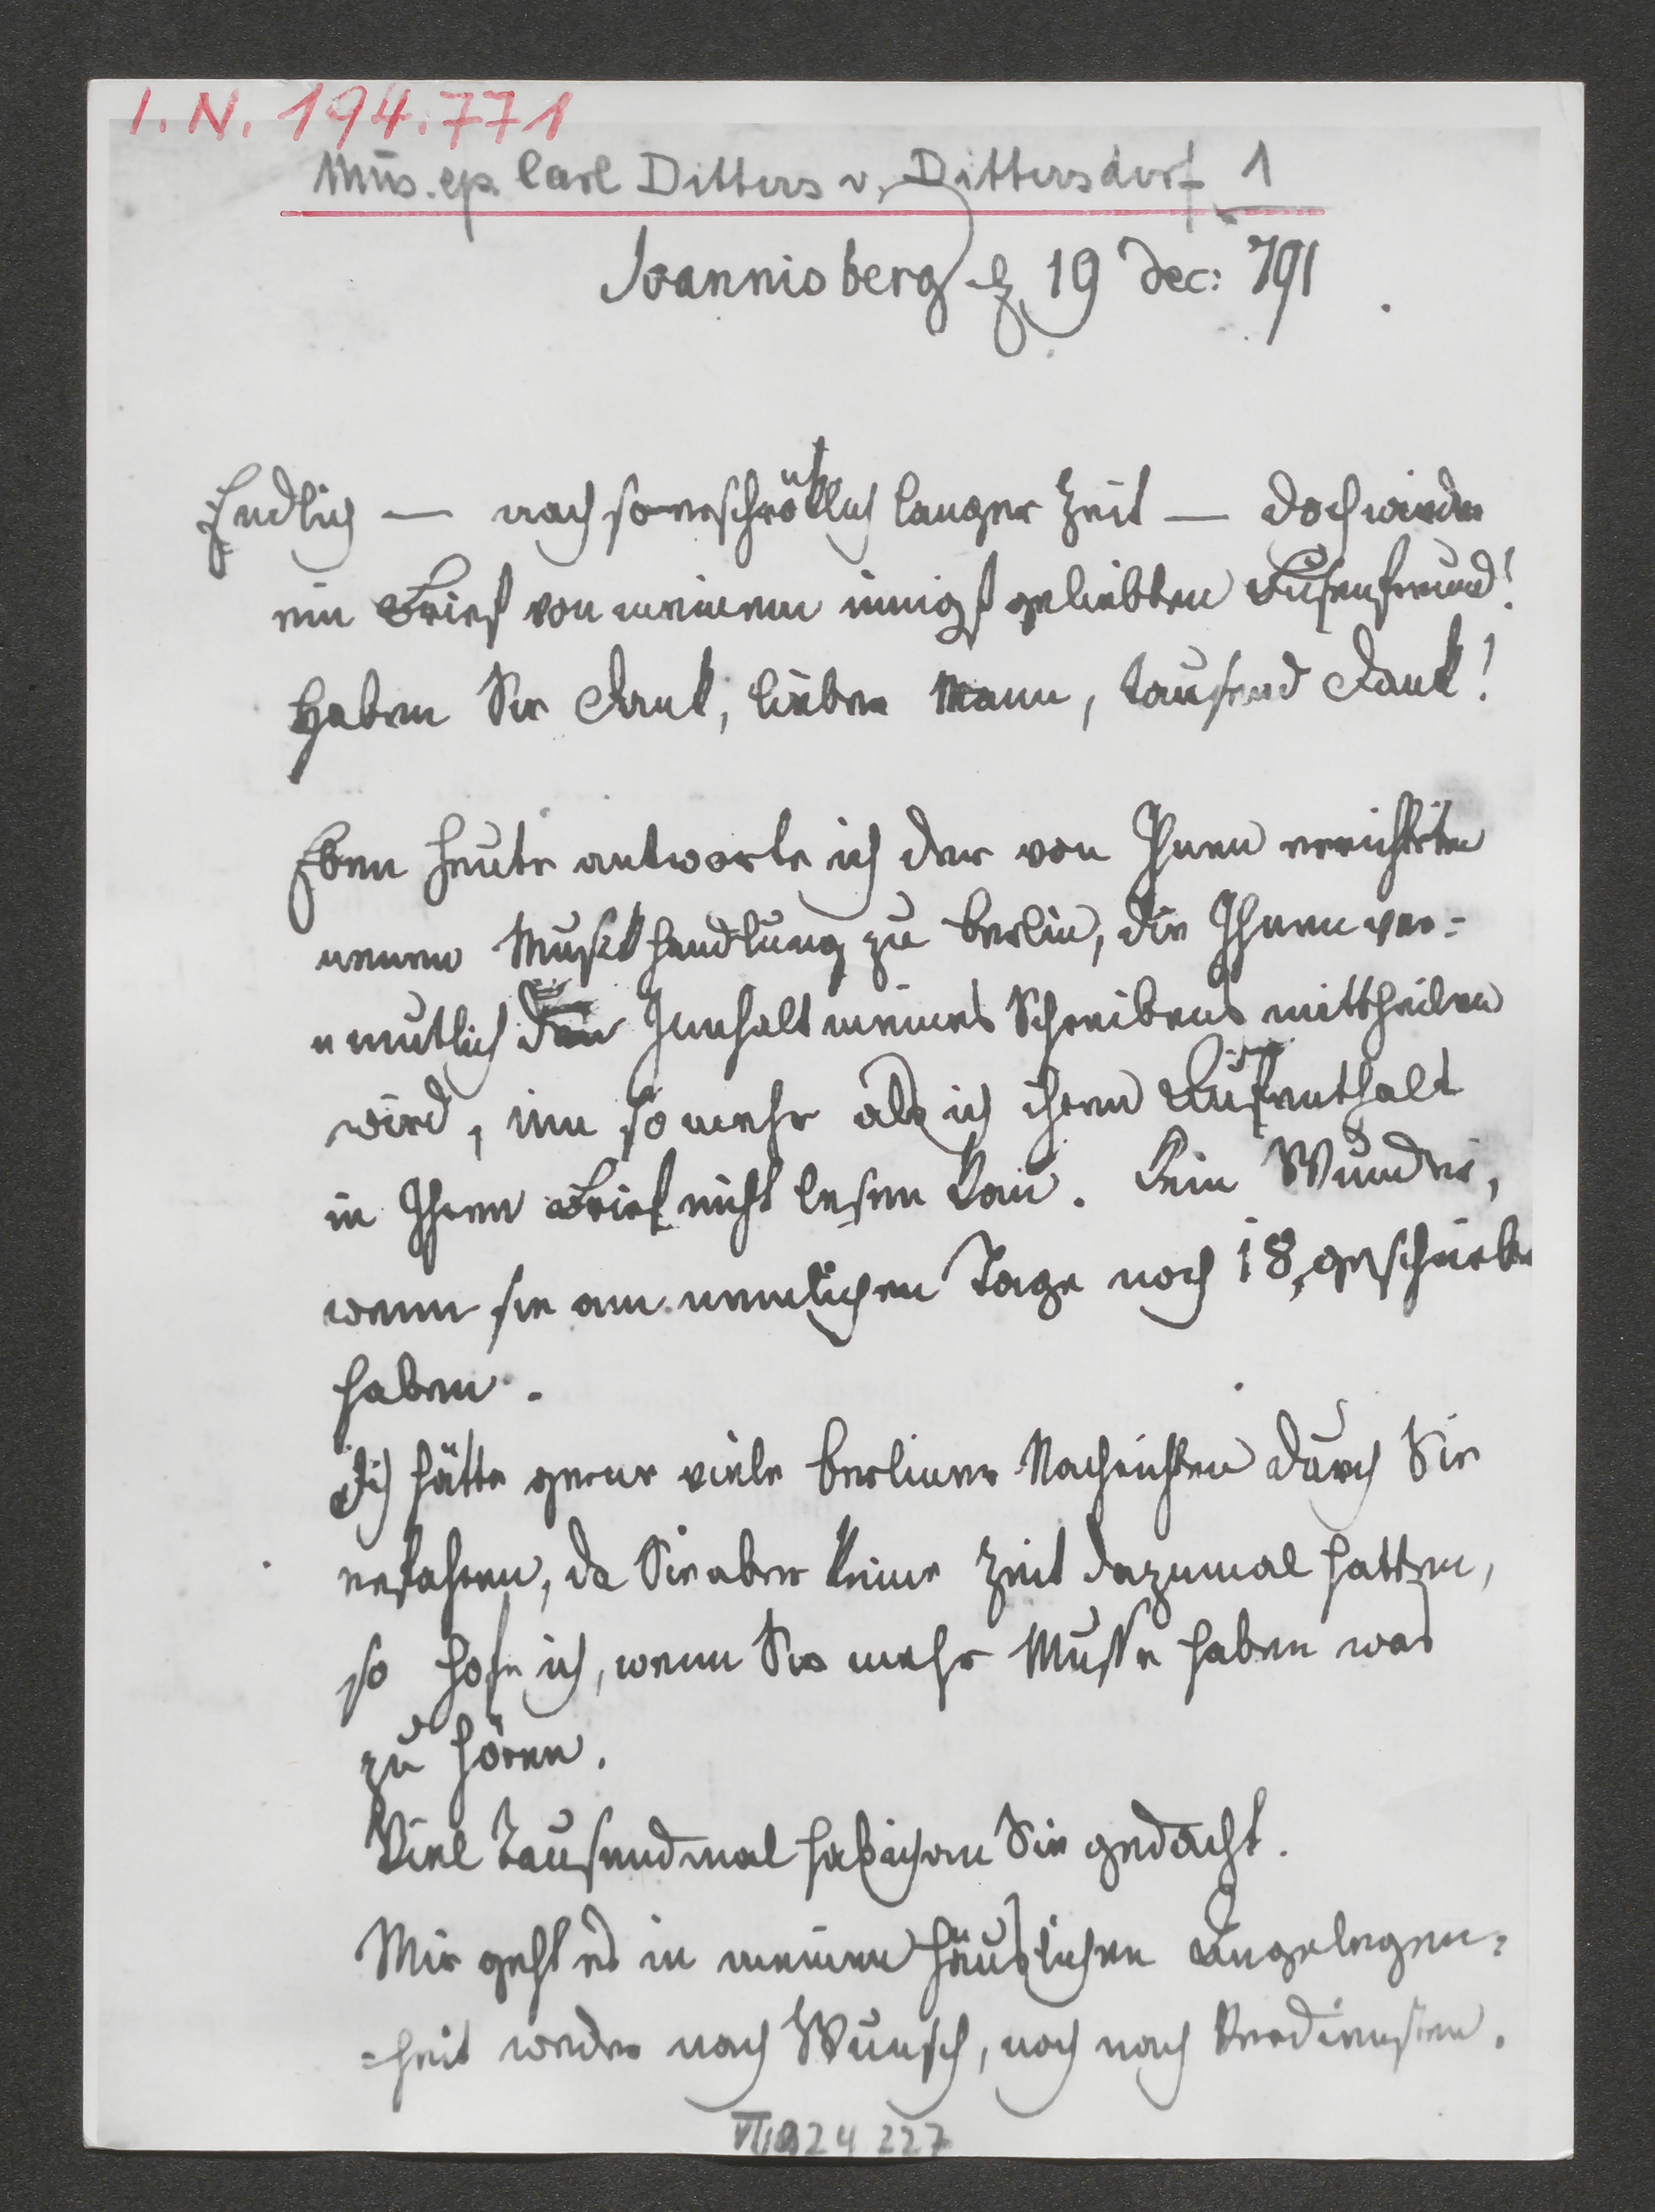 I. N. 194.771
Mus. ep. Carl Ditters v. Dittersdorf 1
Joannisberg d 19 Dec: 791
Endlich — nach so erschröklich langer Zeit — doch wieder
ein Brief von meinem innigst geliebten Busenfreund!
Haben Sie Dank, lieber Mann, tausend Dank!
Eben heute antworte ich der von Ihnen errichteten
neuen Musikhandlung zu Berlin, die Ihnen ver=
=mutlich den Innhalt meines Schreibens mittheilen
wird, um so mehr als ich ihren Aufenthalt
in Ihrem Brief nicht lesen kan̄. Kein Wunder,
wenn sie am nemlichen Tage noch 18 geschrieben
haben.
Ich hätte gerne viele Berliner Nachrichten durch Sie
erfahren, da Sie aber keine Zeit dazumal hatten,
so hofe ich, wenn Sie mehr Musse haben was
zu hören.
Viel Tausendmal hab ich an Sie gedacht.
Mir geht es in meinen häuslichen Angelegen=
=heit weder nach Wunsch, noch nach Verdiensten.
VII 1924 227